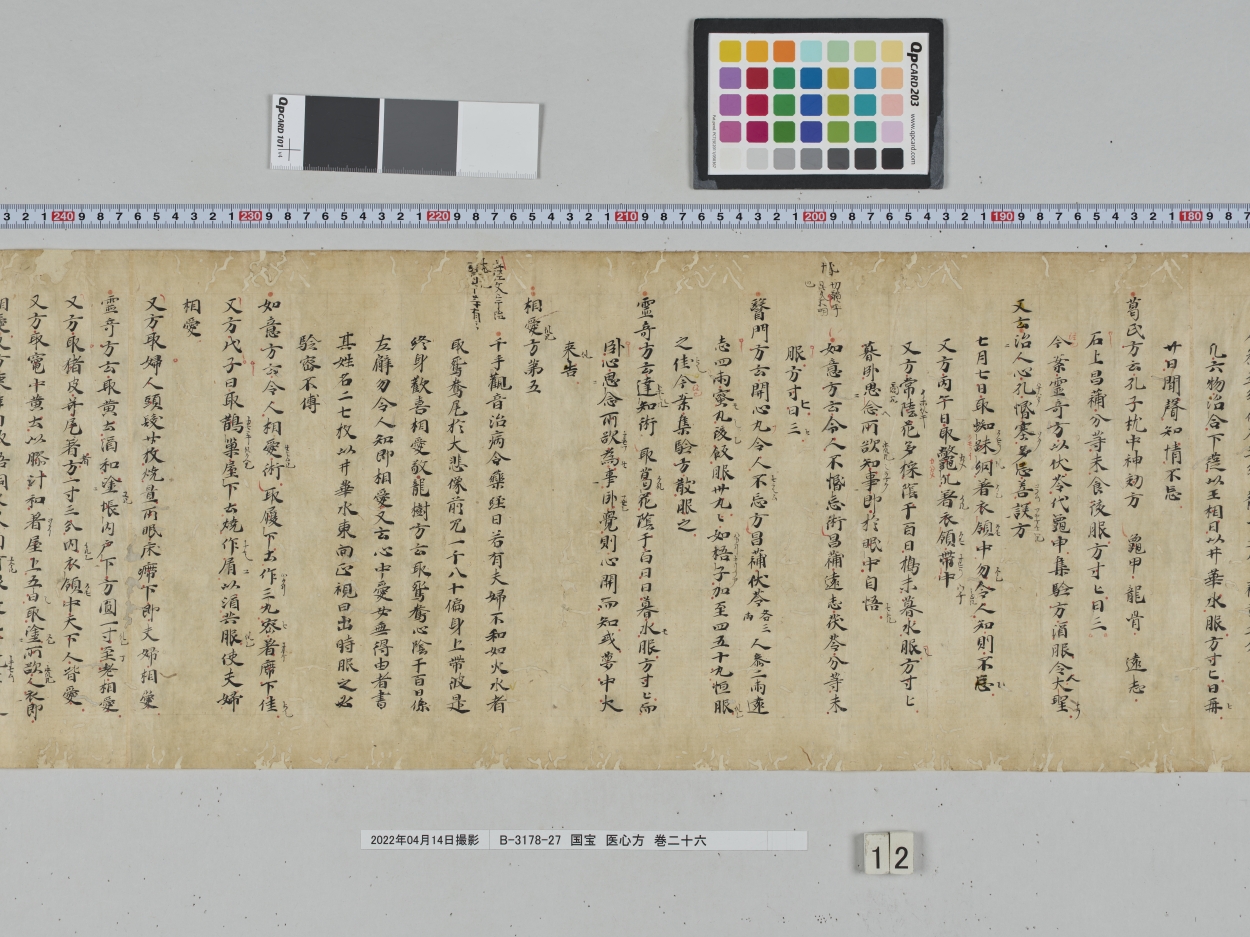 QPCARD 101 v4
QPCARD 203 www.qpcard.com
凡六物治合下篩以王相日以井華水服方寸匕日再
廿日聞聲知情不忘
葛氏方云孔子枕中神効方 龜甲 龍骨 遠志
石上昌蒲分等末食後服方寸匕日三
今案靈奇方以伏苓代龜甲集驗方酒服令人大聖
又云治人心孔惛塞多忘善誤方
七月七日取蜘蛛網著衣領中勿令人知則不忘
又方丙午日取鼈爪著衣領帶中
又方常陸花多採陰干百日擣末暮水服方寸匕
暮臥思念所欲知事即於眠中自悟
如意方云令人不忘術昌蒲遠志茯苓分等末
服方寸日三
醫門方云開心丸令人不忘方昌蒲伏苓各三両人參二両遠
志四両蜜丸後飲服卅丸々如梧子加至四五十丸恒服
之佳今案集驗方散服之
靈奇方云達知術 取葛花陰干百日日暮水服方寸匕而
臥心思念所欲為事臥覺則心開而知或夢中人
来告
相愛方第五
千手觀音治病合藥経曰若有夫婦不和如火水者
取鴛鴦尾於大悲像前咒一千八十遍身上帶彼是
終身歡喜相愛敬龍樹方云取鴛鴦心陰干百日係
左臂勿令人知即相愛又云心中愛女無得由者書
其姓名二七枚以井華水東向正視日出時服之必
驗審不傳
如意方云令人相愛術 取履下土作三丸密著席下佳
又方戊子日取鵲巢屋下土燒作屑以酒共服使夫婦
相愛
又方取婦人頭髮廿枚燒置所眠床席下即夫婦相愛
靈奇方云取黄土酒和塗帳内戶下方圓一寸至老相愛
又方取猪皮并尾者方一寸三分内衣領中天下人皆愛
又方取竈中黄土以膠汁和著屋上五日取塗所欲人衣即
2022年04月14日撮影 B-3178-27 国宝 医心方 巻二十六
12